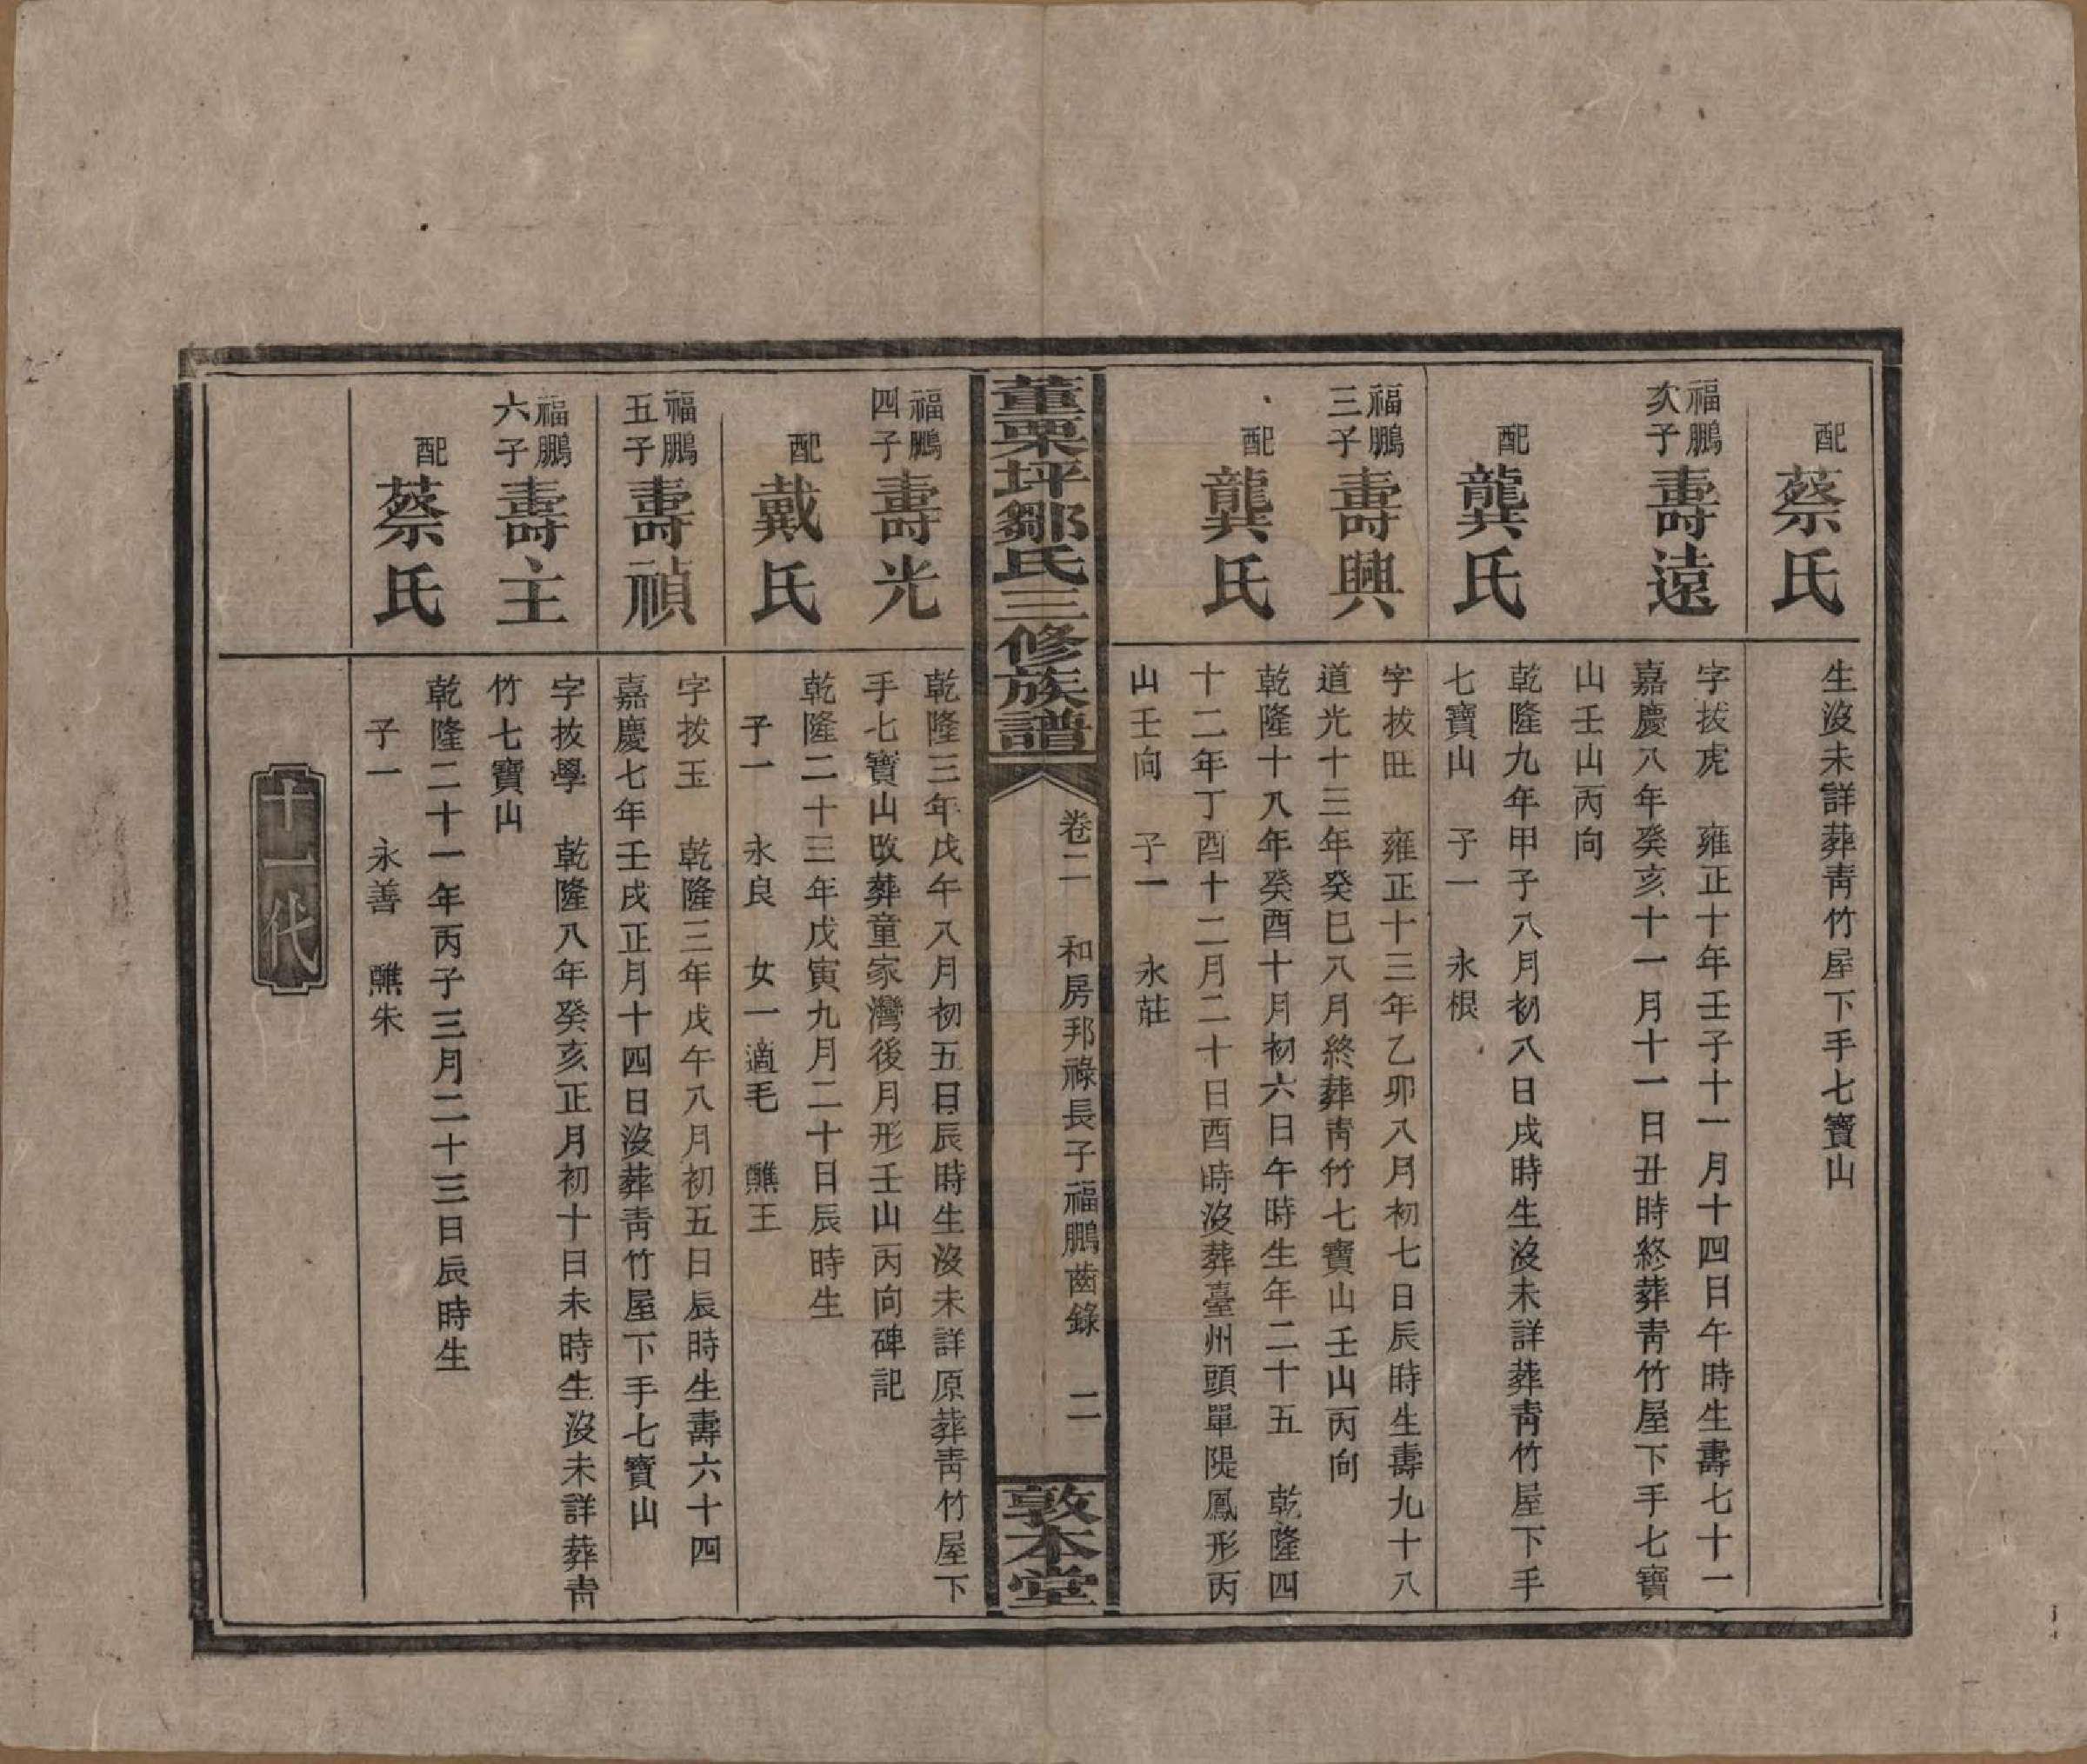 配
蔡氏
生沒未詳葬靑竹屋下手七寶山
福鵬
次子
壽遠
字拔虎　雍正十年壬子十一月十四日午時生壽七十一
嘉慶八年癸亥十一月十一日丑時終葬靑竹屋下手七寶
山壬山丙向
配
龔氏
乾隆九年甲子八月初八日戌時生沒未詳葬靑竹屋下手
七寶山　子一　永根
福鵬
三子
壽興
字拔田　雍正十三年乙卯八月初七日辰時生壽九十八
道光十三年癸巳八月終葬靑竹七寶山壬山丙向
配
龔氏
乾隆十八年癸酉十月初六日午時生年二十五　乾隆四
十二年丁酉十二月二十日酉時沒葬臺州頭單隄鳳形丙
山壬向　子一　永莊
董栗坪鄒氏三修族譜
卷二　和房邦祿長子福鵬齒錄　二
敦本堂
福鵬
四子
壽光
乾隆三年戊午八月初五日辰時生沒未詳原葬靑竹屋下
手七寶山改葬童家灣後月形壬山丙向碑記
配
戴氏
乾隆二十三年戊寅九月二十日辰時生
子一　永良　女一適毛　醮王
福鵬
五子
壽禎
字拔玉　乾隆三年戊午八月初五日辰時生壽六十四
嘉慶七年壬戌正月十四日沒葬靑竹屋下手七寶山
福鵬
六子
壽主
字拔學　乾隆八年癸亥正月初十日未時生沒未詳葬靑
竹七寶山
配
蔡氏
乾隆二十一年丙子三月二十三日辰時生
子一　永善　醮朱
十一代